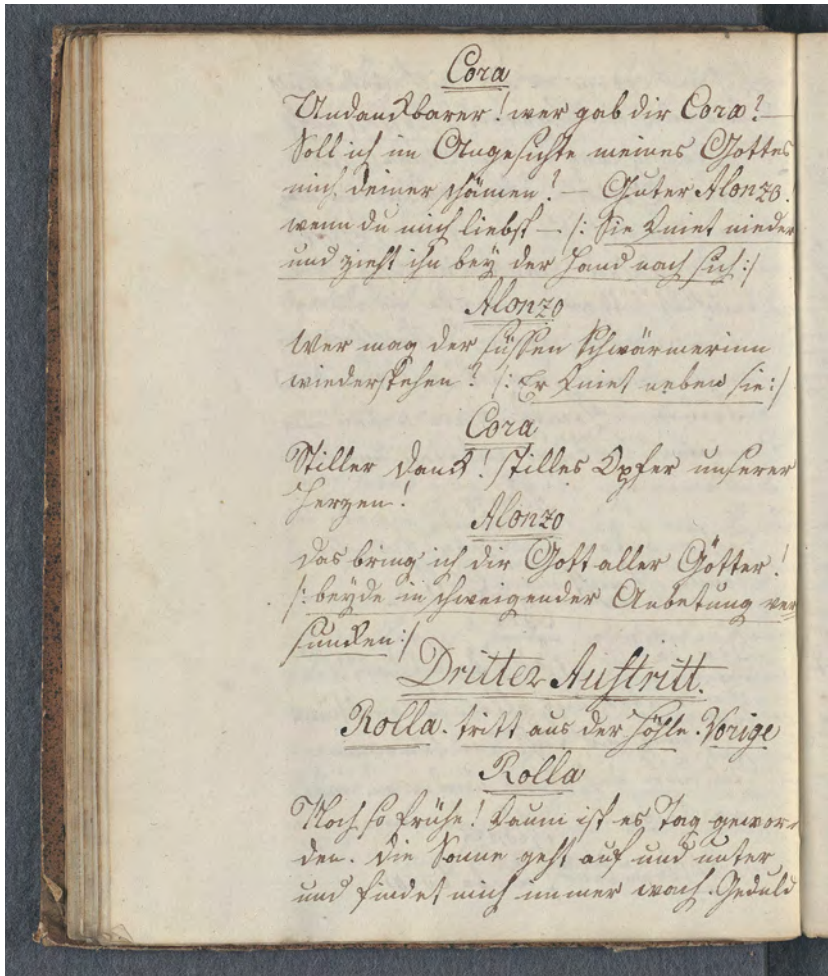 Cora
Undanckbarer! wer gab dir Cora? —
Soll ich im Angesichte meines Gottes
mich deiner schämen? — Guter Alonzo!
wenn du mich liebst — /: Sie kniet nieder
und zieht ihn bey der Hand nach sich :/
Alonzo
Wer mag der süssen Schwärmerinn
wiederstehen? /: Er kniet neben sie :/
Cora
Stiller Danck! stilles Opfer unserer
Herzen!
Alonzo
Das bring ich dir Gott aller Götter!
/: beyde in schweigender Anbetung ver
suncken :/
Dritter Auftritt.
Rolla. tritt aus der Höhle. Vorige
Rolla
Noch so frühe! kaum ist es Tag gewor-
den. Die Sonne geht auf und unter
und findet mich immer wach. Geduld